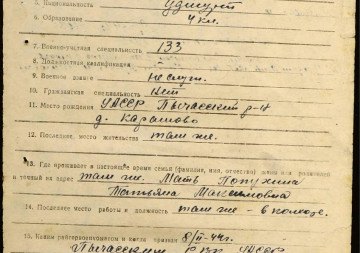 5. Национальность удмурт
6. Образование 4 кл.
7. Военно-учетная специальность 133
8. Должностная квалификация -
9. Военное звание не служ.
10. Гражданская специальность нет
11. Место рождения УАССР Пычасский р-н
д. Карашово
12. Последнее место жительства там же.
13. Где проживает в настоящее время семья (фамилия, имя, отчество) жены или родителей
и точный их адрес там же. Мать
Татьяна Максимовна
14. Последнее место работы и должность там же - в колхозе.
15. Каким райвоенкоматом и когда призван 8/II-44г.
Пычасским РВК УАССР